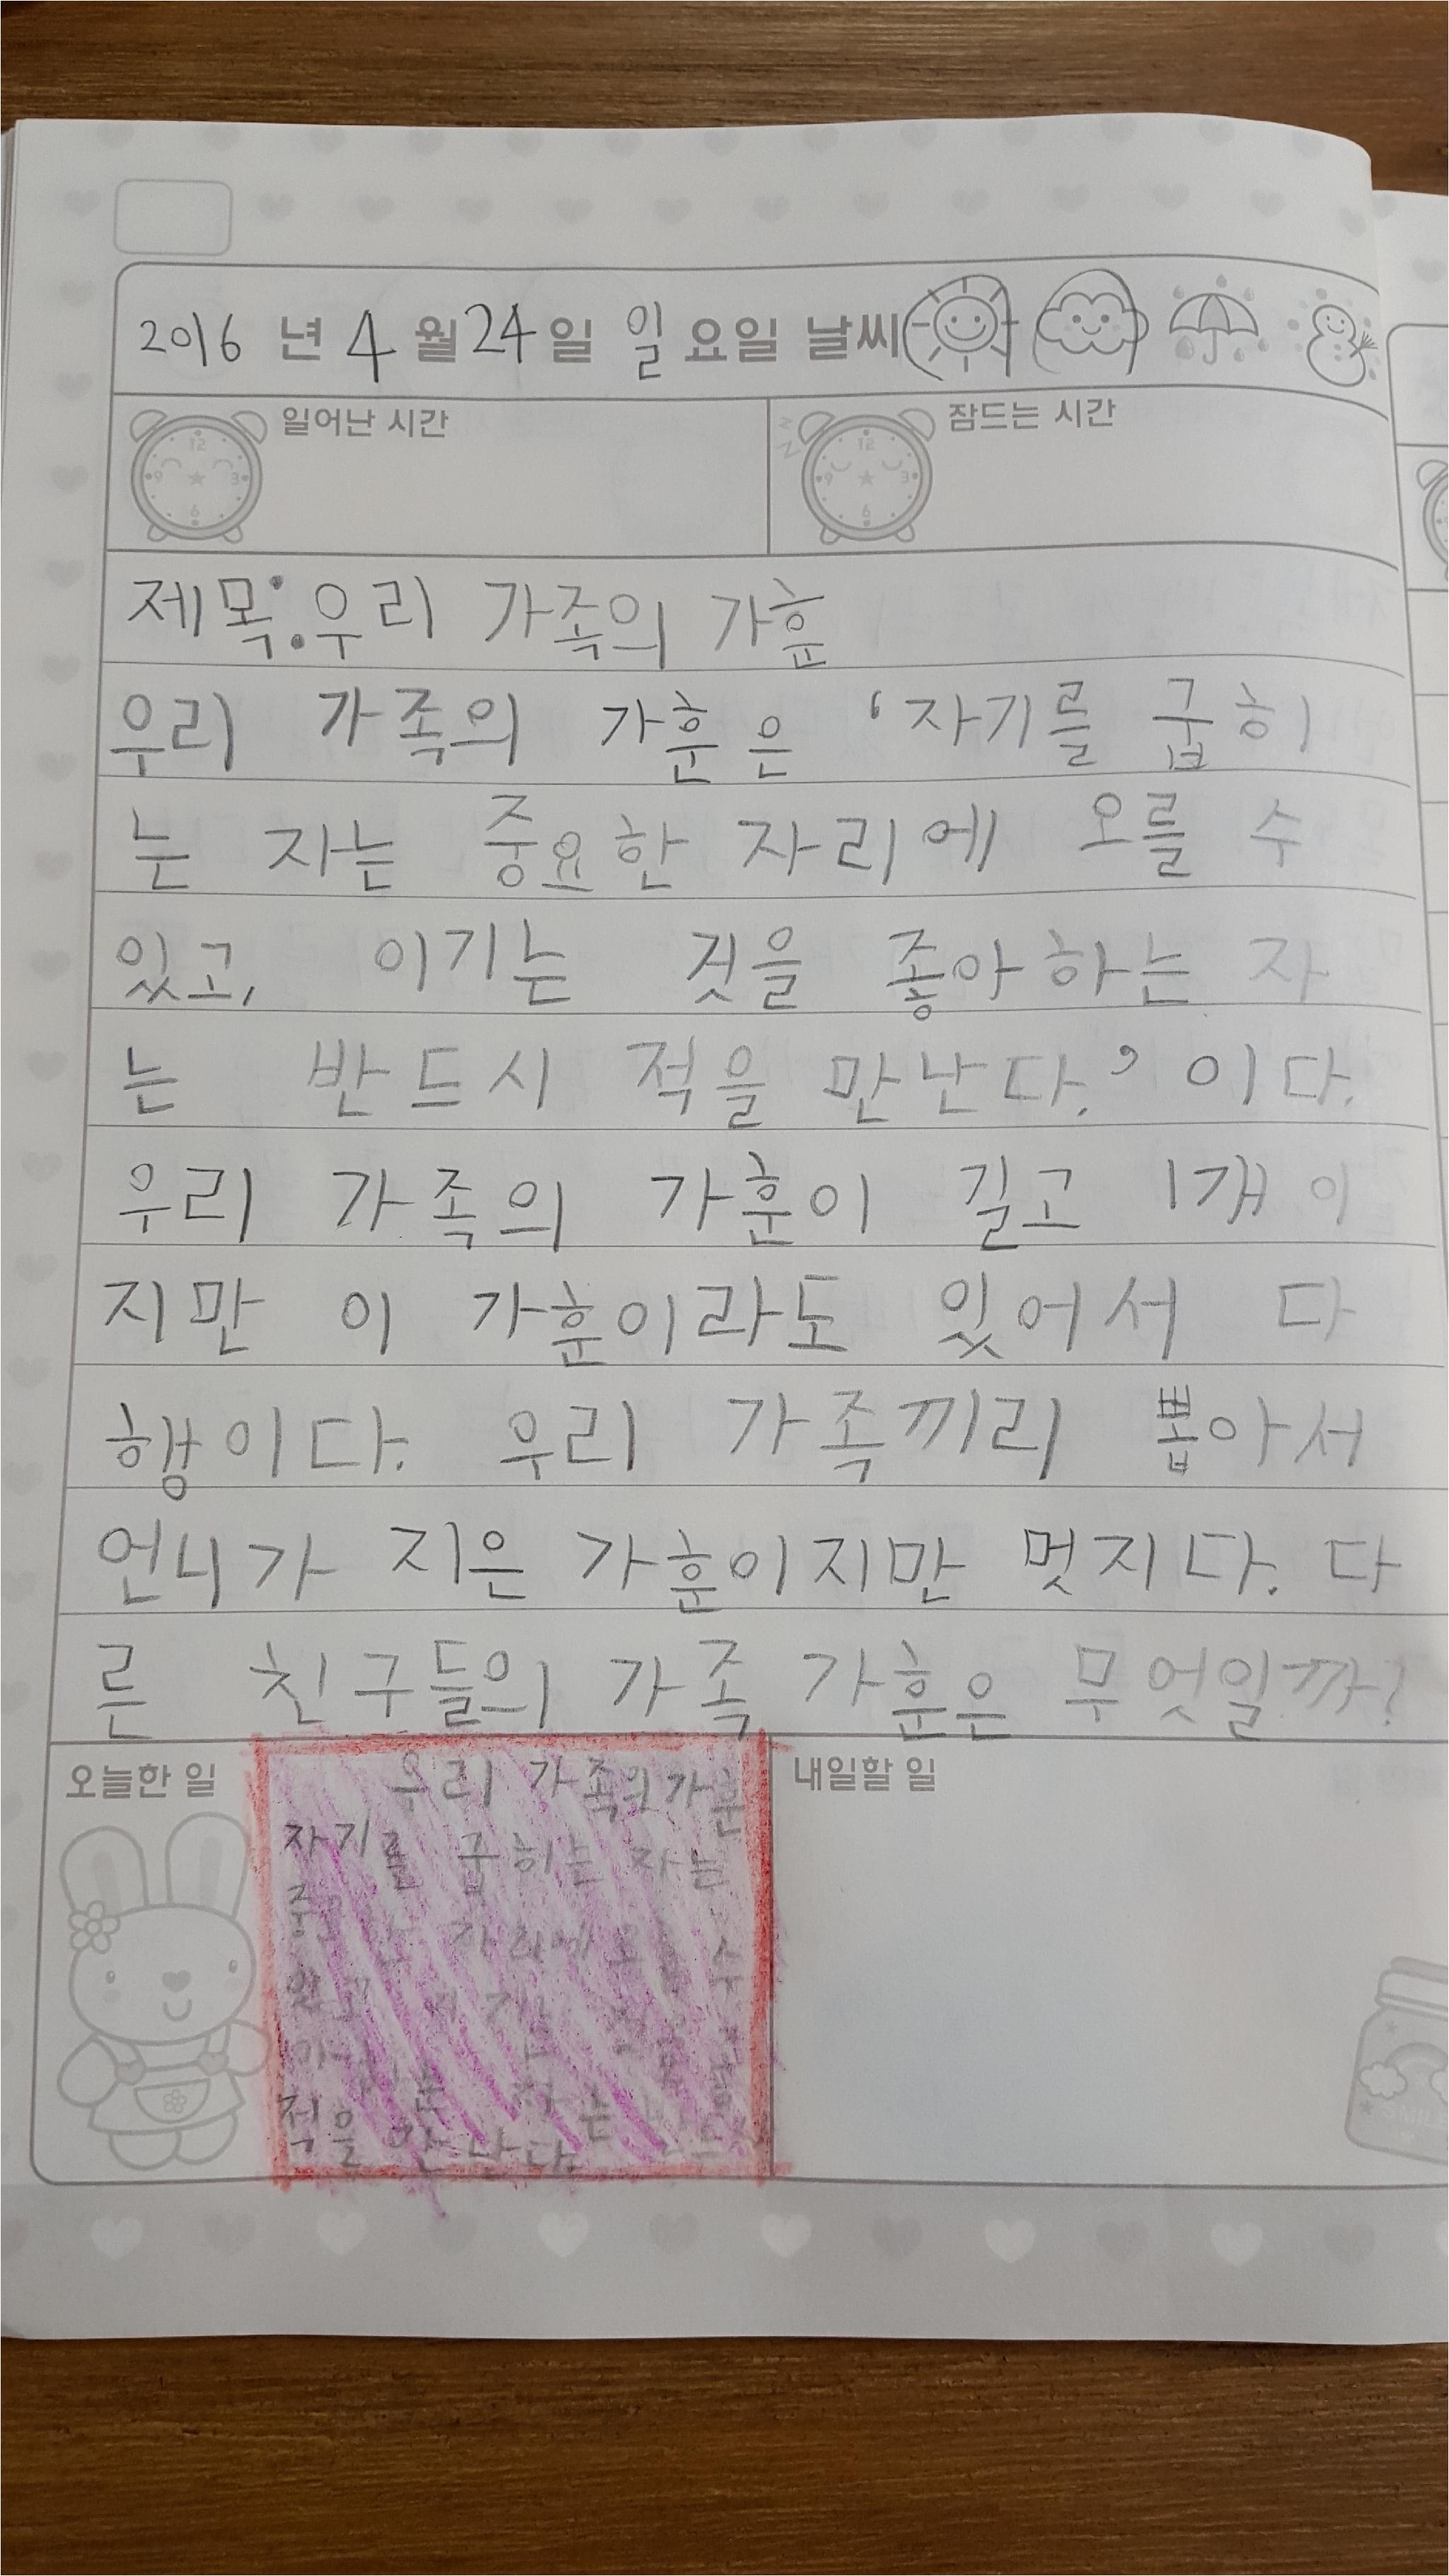 2016 년 4 월 24 일 일 요일 날씨
일어난 시간
잠드는 시간
제목:우리 가족의 가훈
우리 가족의 가훈은 ‘자기를 굽히
는 자는 중요한 자리에 오를 수
있고, 이기는 것을 좋아하는 자
는 반드시 적을 만난다.’이다.
우리 가족의 가훈이 길고 1개이
지만 이 가훈이라도 있어서 다
행이다. 우리 가족끼리 뽑아서
언니가 지은 가훈이지만 멋지다. 다
른 친구들의 가족 가훈은 무엇일까?
오늘한 일
우리 가족의 가훈
자기를 굽히는 자는
자리에 오를 수
있고
적을 만난다.
내일할 일